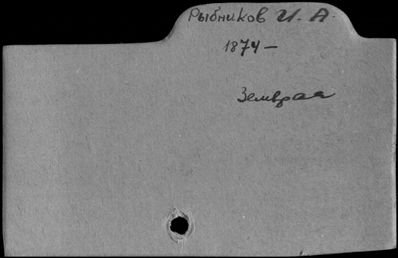 Рыбников И. А.
1874 —
Земврач